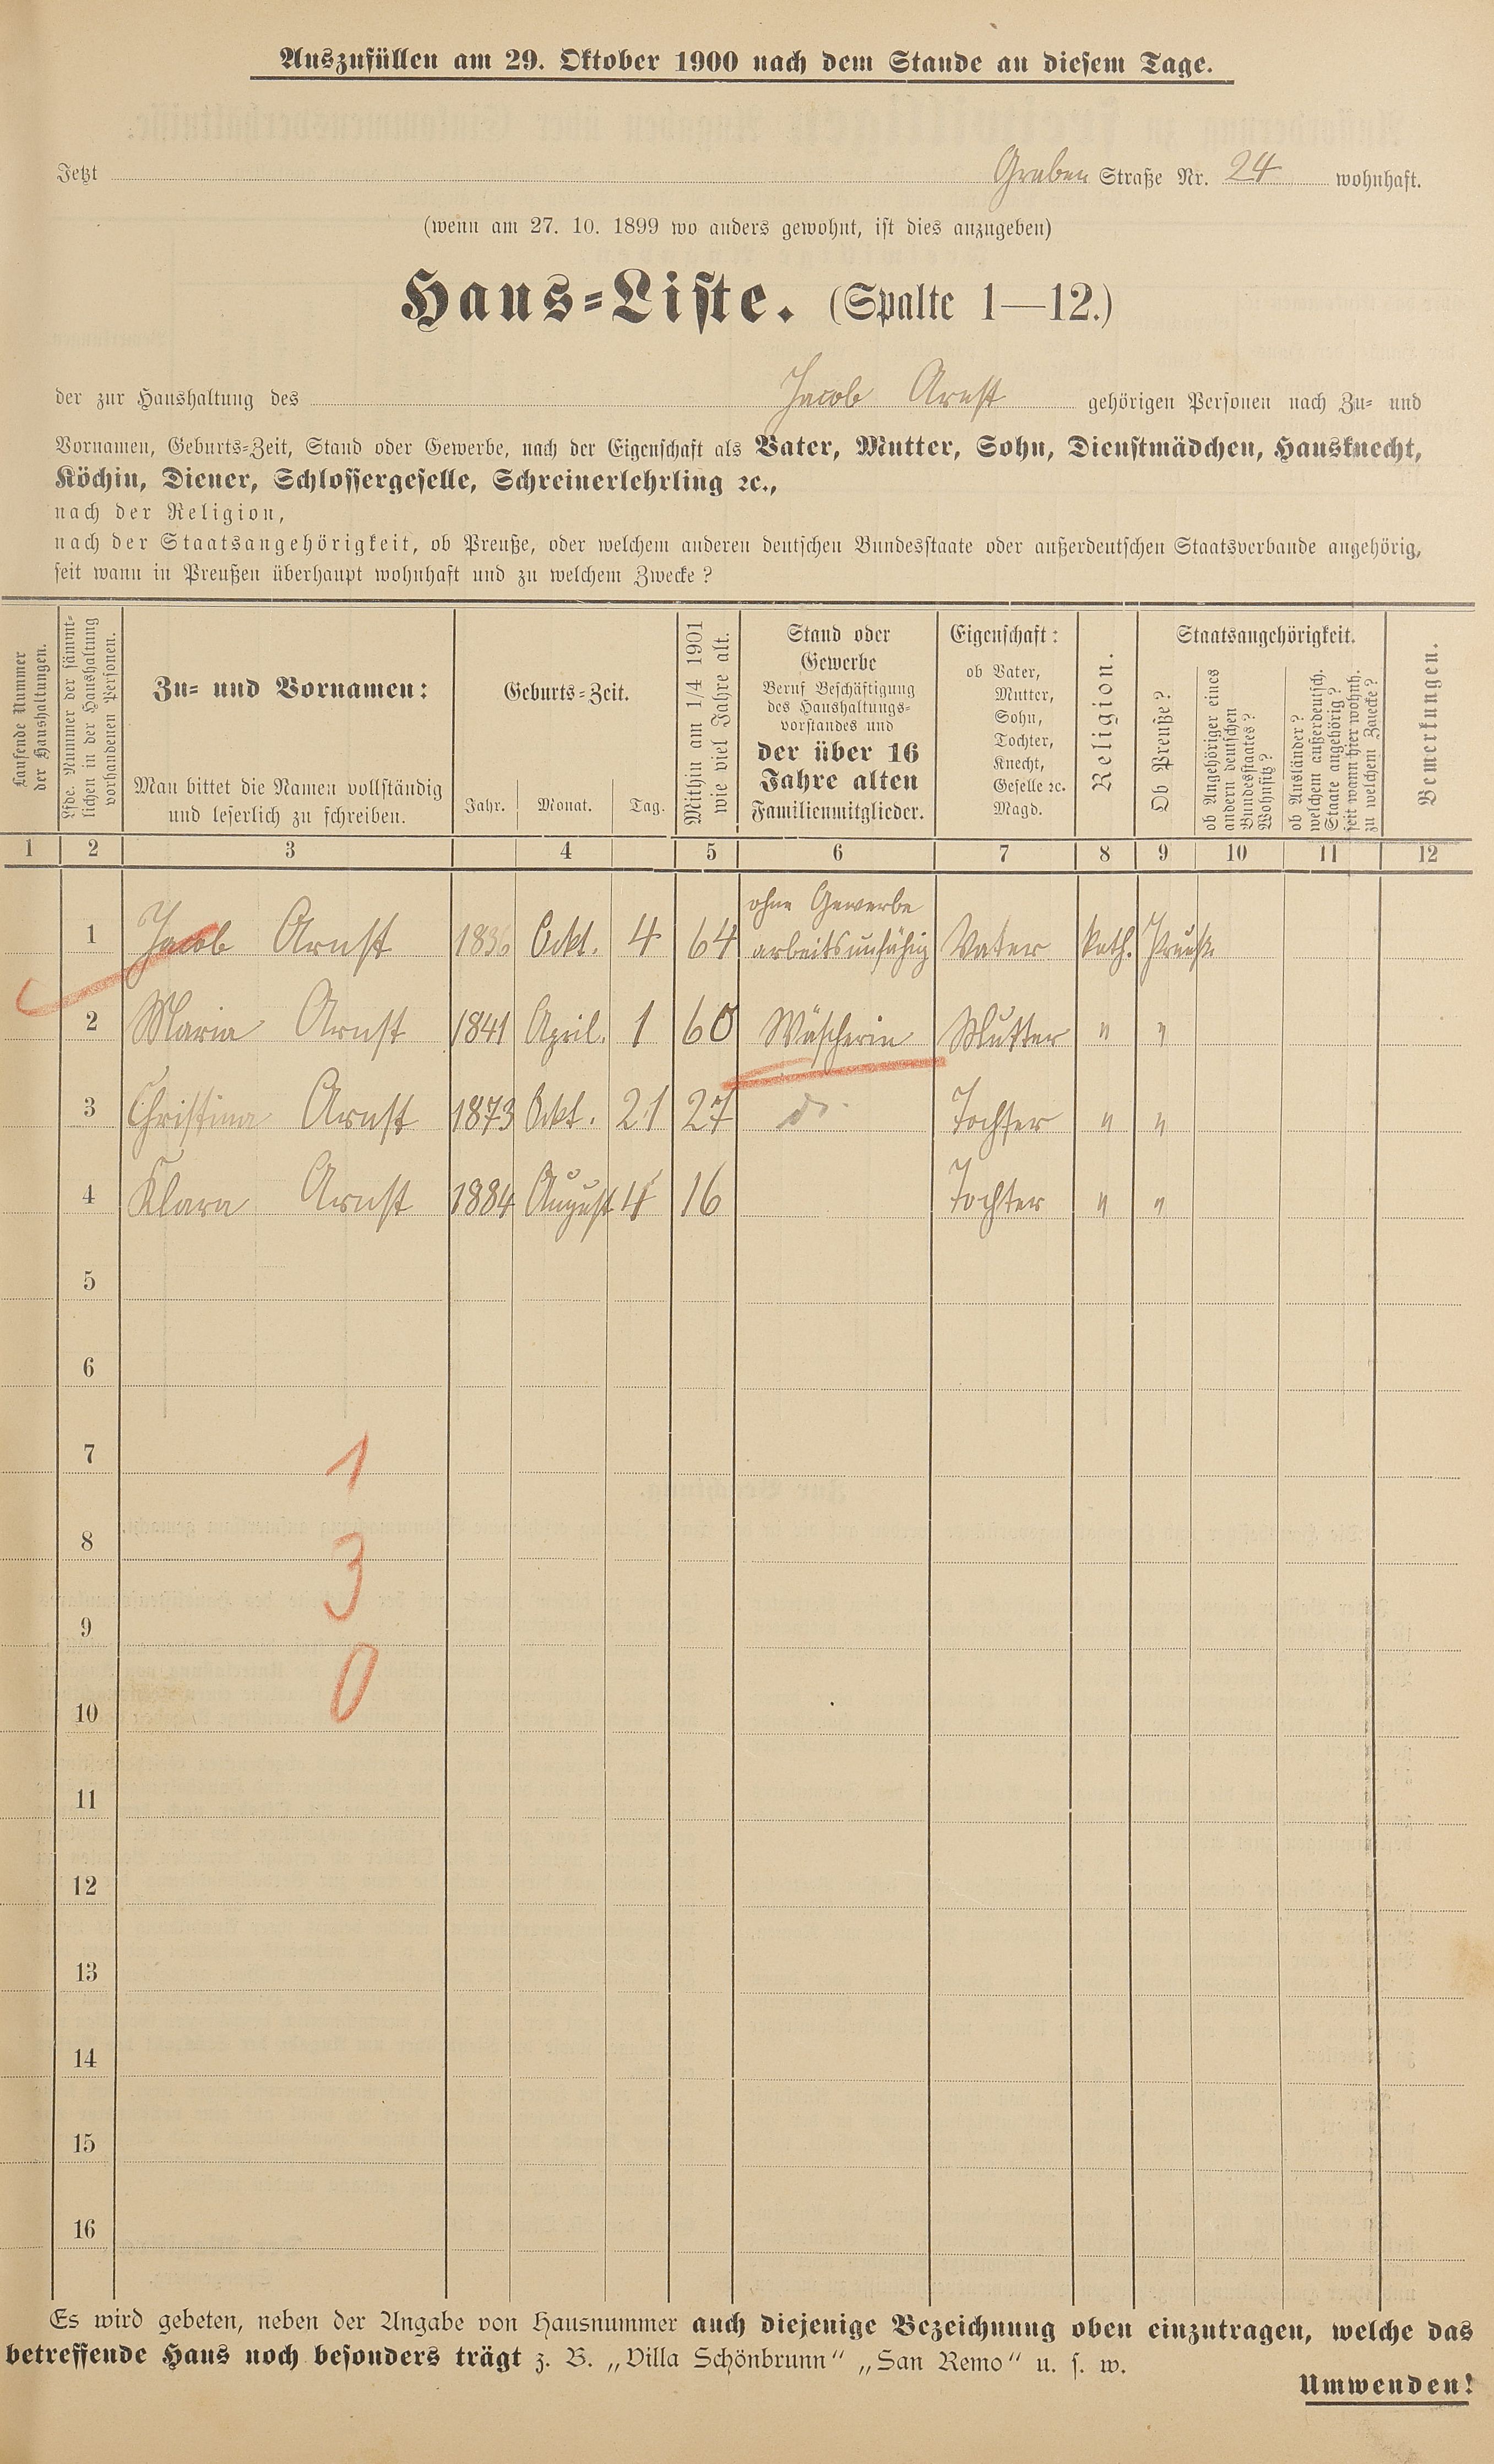 Auszufüllen am 29. Oktober 1900 nach dem Stande an diesem Tage.
Jetzt Graben Straße Nr. 24 wohnhaft.
(wenn am 27. 10. 1899 wo anders gewohnt, ist dies anzugeben)
Haus-Liste. (Spalte 1—12.)
der zur Haushaltung des Jacob Arnst gehörigen Personen nach Zu- und
Vornamen, Geburts-Zeit, Stand oder Gewerbe, nach der Eigenschaft als Vater, Mutter, Sohn, Dienstmädchen, Hausknecht,
Köchin, Diener, Schlossergeselle, Schreinerlehrling ꝛc.,
nach der Religion,
nach der Staatsangehörigkeit, ob Preuße, oder welchem anderen deutschen Bundesstaate oder außerdeutschen Staatsverbande angehörig,
seit wann in Preußen überhaupt wohnhaft und zu welchem Zwecke?
Laufende Nummer
der Haushaltungen.
Lfde. Nummer der sämmt-
lichen in der Haushaltung
vorhandenen Personen.
Zu- und Vornamen:
Man bittet die Namen vollständig
und leserlich zu schreiben.
Geburts-Zeit.
Jahr. Monat. Tag.
Mithin am 1/4 1901
wie viel Jahre alt.
Stand oder
Gewerbe
Beruf Beschäftigung
des Haushaltungs-
vorstandes und
der über 16
Jahre alten
Familienmitglieder.
Eigenschaft:
ob Vater,
Mutter,
Sohn,
Tochter,
Knecht,
Geselle ꝛc.
Magd.
Religion.
Staatsangehörigkeit.
Ob Preuße?
ob Angehöriger eines
andern deutschen
Bundesstaates?
Wohnsitz?
ob Ausländer?
welchem außerdeutsch.
Staate angehörig?
seit wann hier wohnh.
zu welchem Zwecke?
Bemerkungen.
1 2 3 4 5 6 7 8 9 10 11 12
ohne Gewerbe
1 Jacob Arnst 1836 Okt. 4 64 arbeitsunfähig Vater kath. Preuß.
2 Maria Arnst 1841 April. 1 60 Wäscherin Mutter " "
3 Christina Arnst 1873 Okt. 21 27 do. Tochter " "
4 Klara Arnst 1884 August 4 16 Tochter " "
5
6
7 1
8 3
9
10 0
11
12
13
14
15
16
Es wird gebeten, neben der Angabe von Hausnummer auch diejenige Bezeichnung oben einzutragen, welche das
betreffende Haus noch besonders trägt z. B. „Villa Schönbrunn“ „San Remo“ u. s. w.
Umwenden!